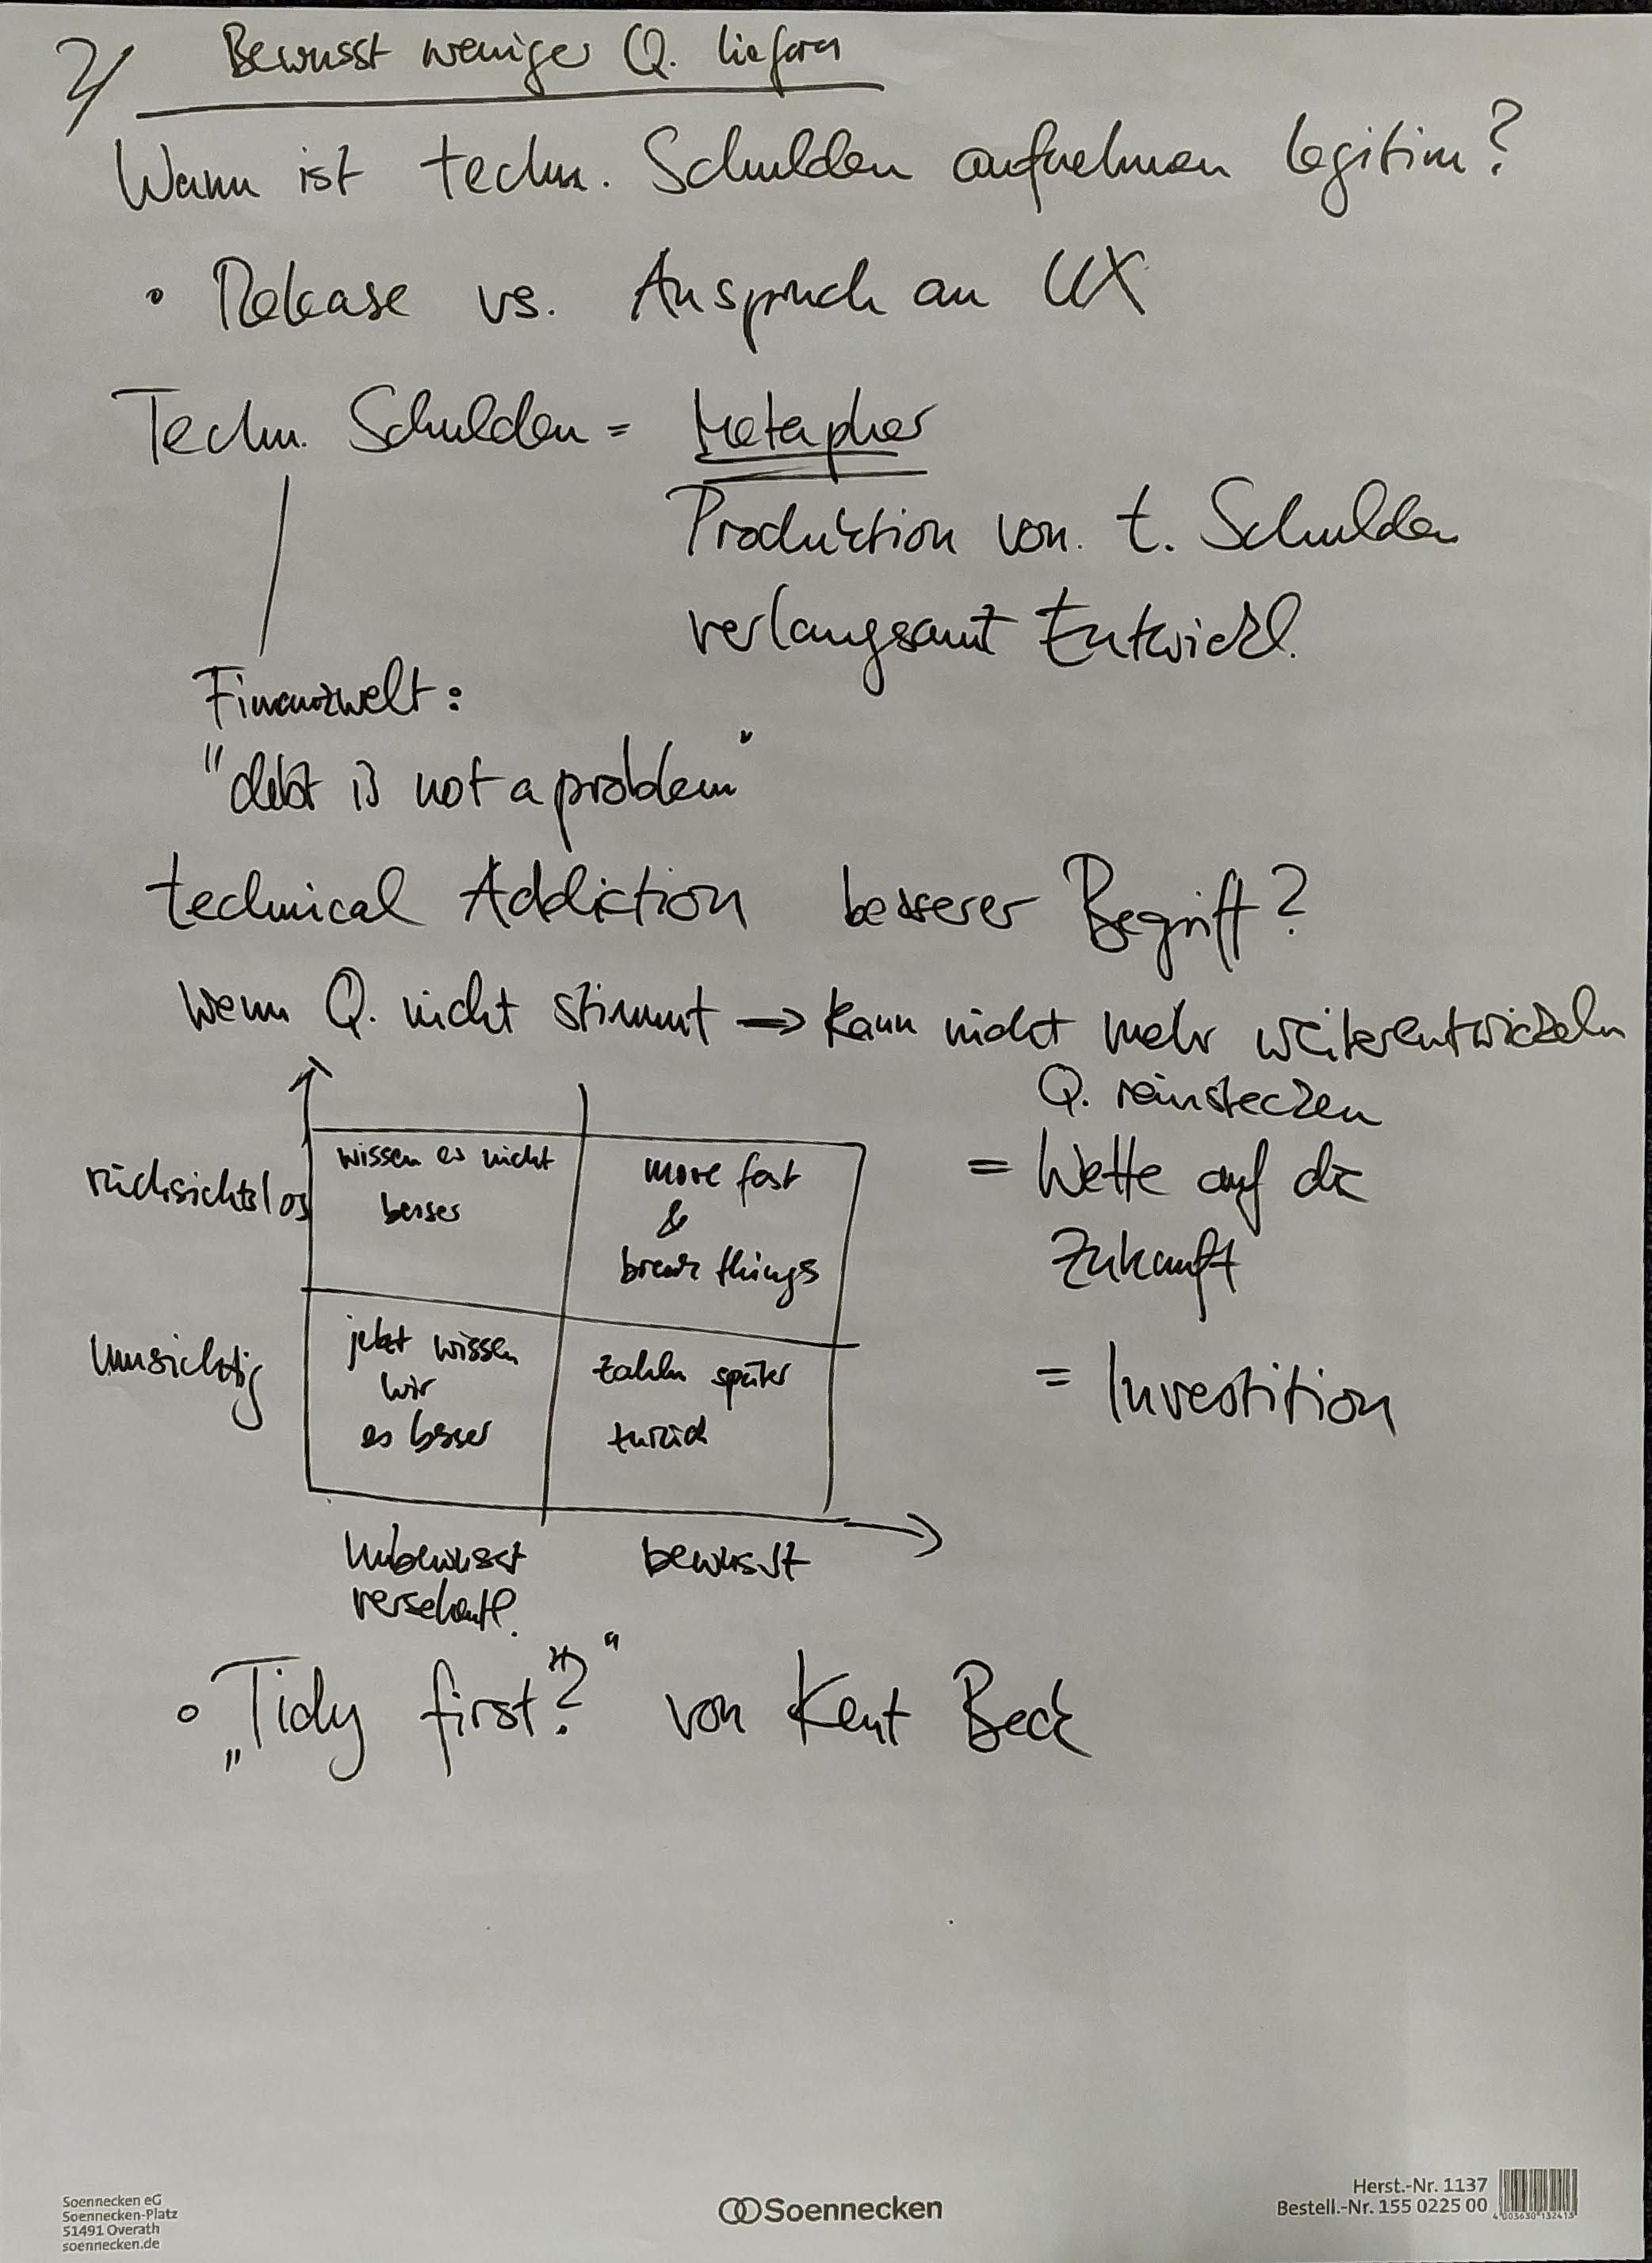 2/ Bewusst weniger Q. liefern
Wann ist techn. Schulden aufnehmen legitim?
• Release vs. Anspruch an UX
Techn. Schulden = Metapher
Produktion von. t. Schulden
verlangsamt Entwickl.
Finanzwelt:
"debt is not a problem"
technical Addiction besserer Begriff?
wenn Q. nicht stimmt → kann nicht mehr weiterentwickeln
Q. reinstecken
= Wette auf die
Zukunft
= Investition
rücksichtslos
wissen es nicht
besser
move fast
&
break things
umsichtig
jetzt wissen
wir
es besser
zahlen später
zurück
unbewusst
versehentl.
bewusst
• „Tidy first?" von Kent Beck
Soennecken eG
Soennecken-Platz
51491 Overath
soennecken.de
Soennecken
Herst.-Nr. 1137
Bestell.-Nr. 155 0225 00
4 003630 132413